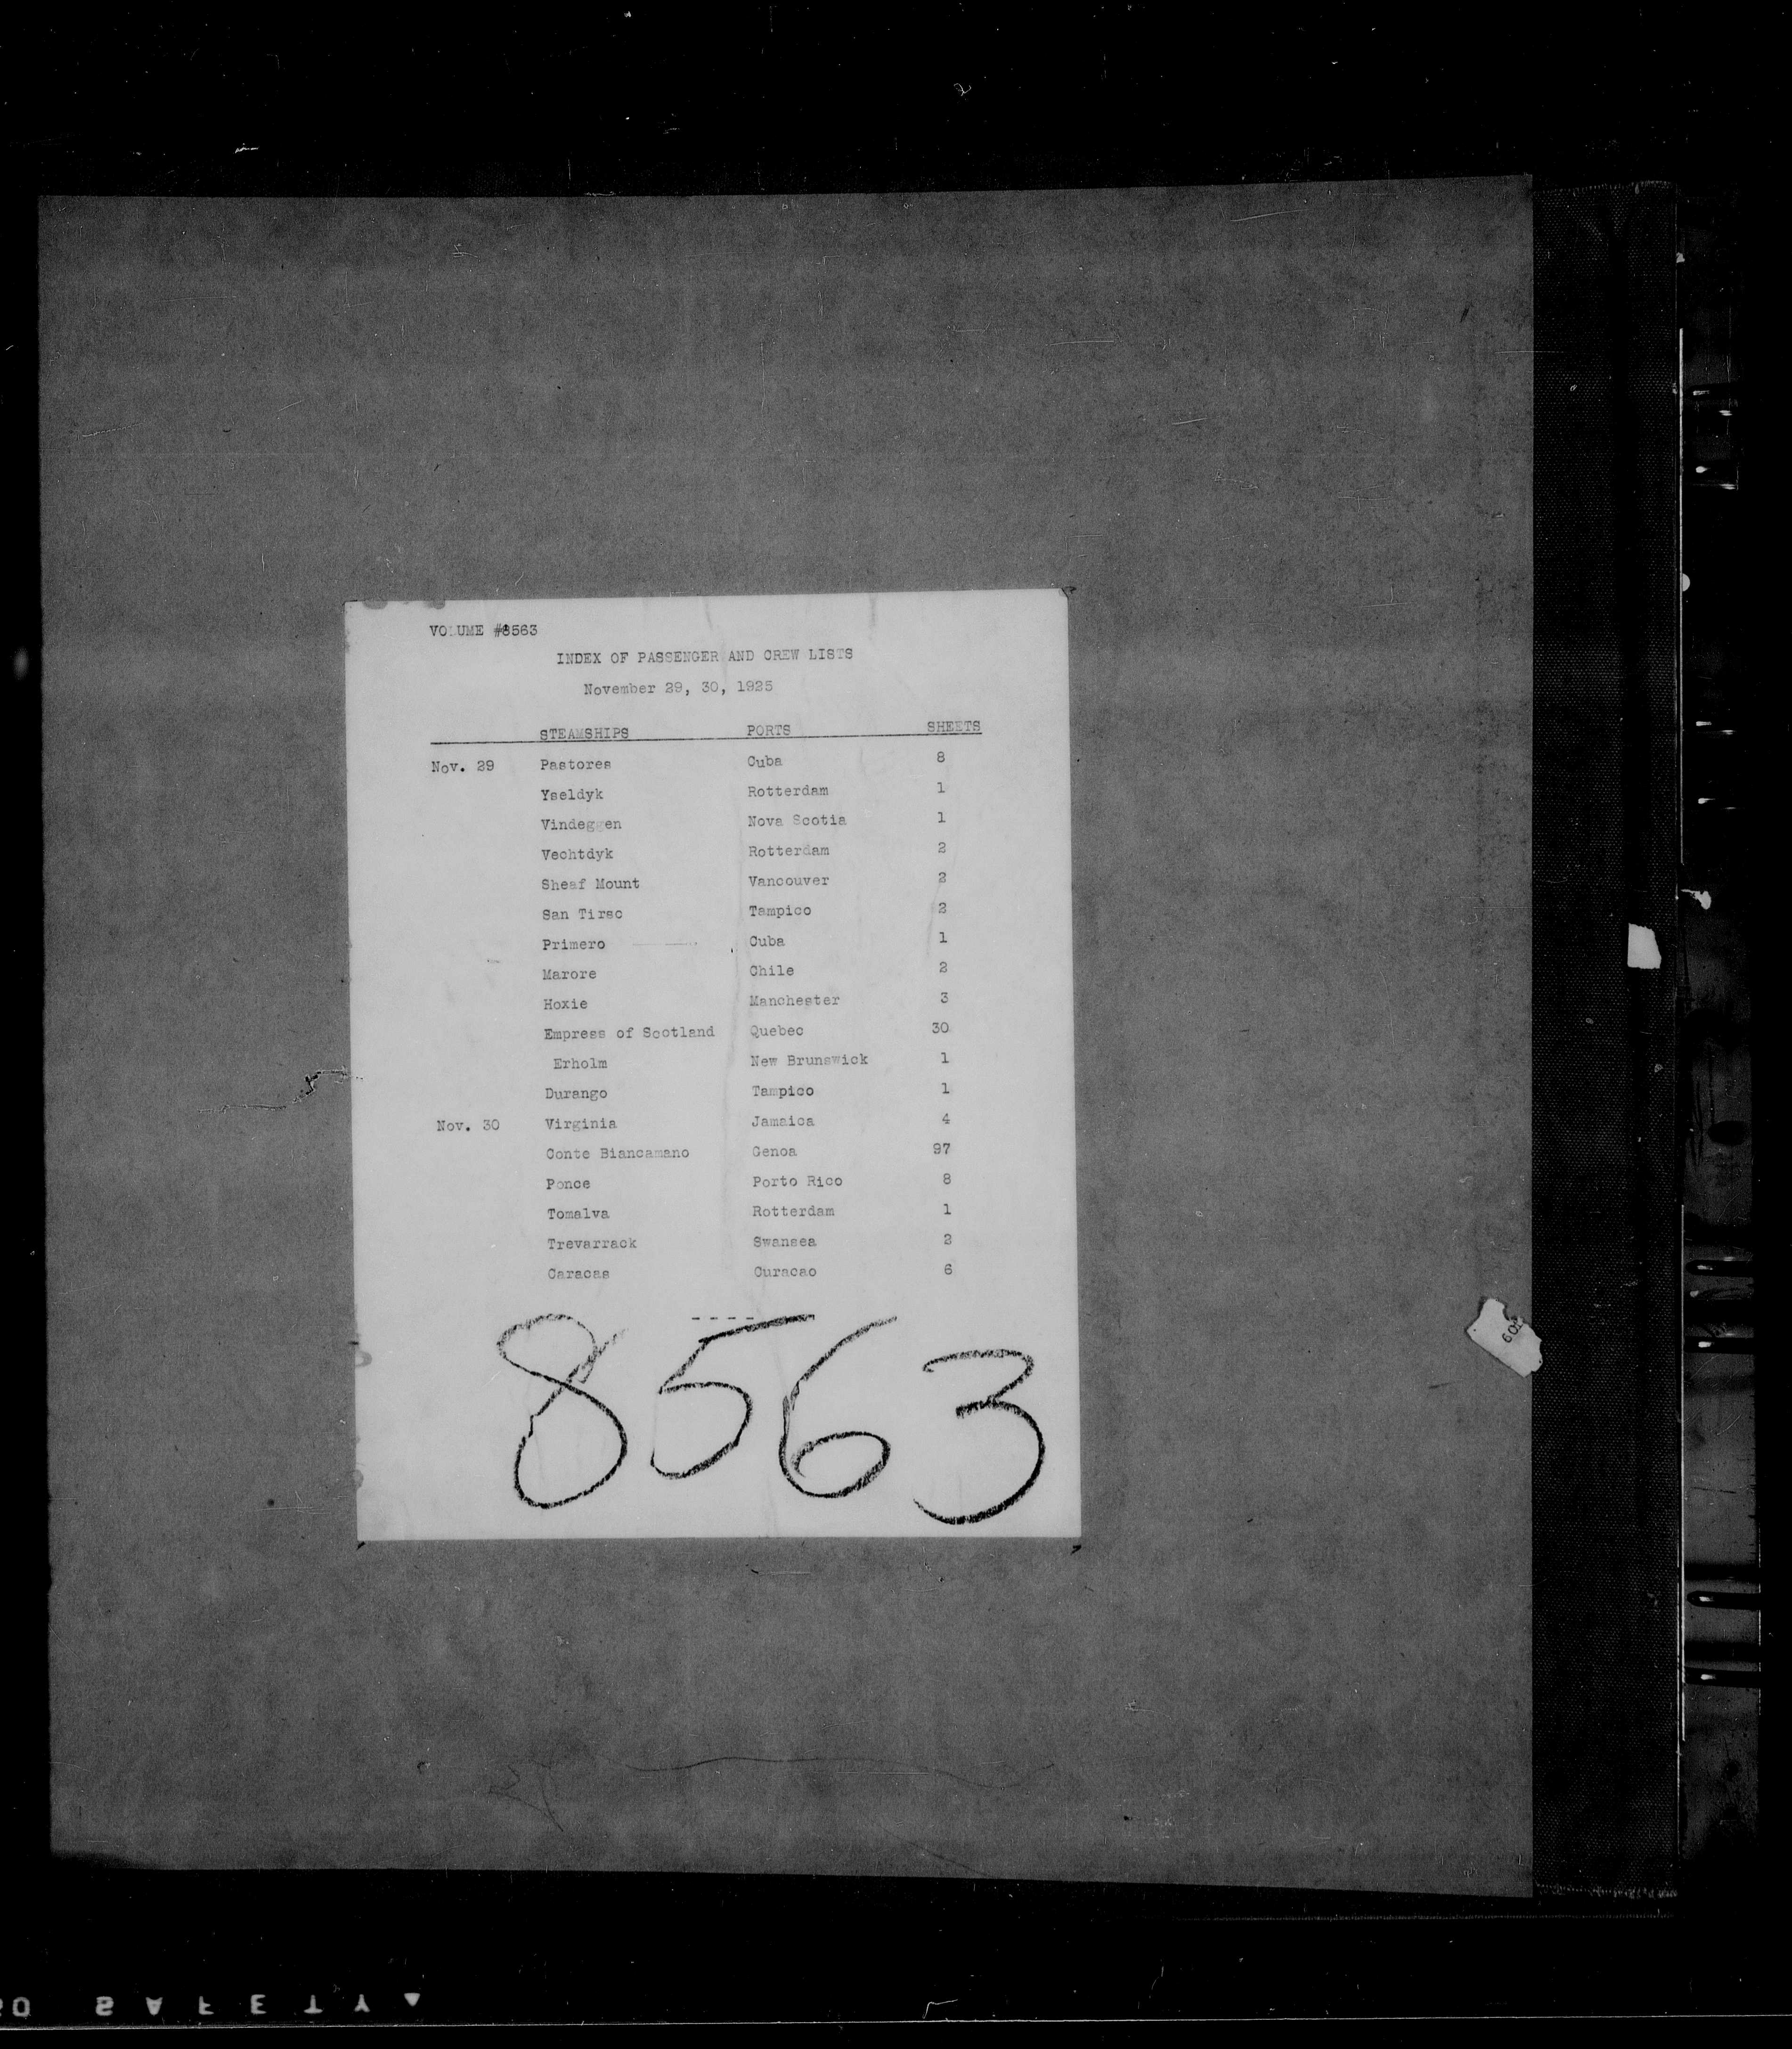 VOLUME #8563
INDEX OF PASSENGER AND CREW LISTS
November 29, 30, 1925
STEAMSHIPS PORTS SHEETS
Nov. 29 Pastores Cuba 8
Yseldyk Rotterdam 1
Vindeggen Nova Scotia 1
Vechtdyk Rotterdam 2
Sheaf Mount Vancouver 2
San Tirso Tampico 2
Primero Cuba 1
Marore Chile 2
Hoxie Manchester 3
Empress of Scotland Quebec 30
Erholm New Brunswick 1
Durango Tampico 1
Nov. 30 Virginia Jamaica 4
Conte Biancamano Genoa 97
Ponce Porto Rico 8
Tomalva Rotterdam 1
Trevarrack Swansea 2
Caracas Curacao 6
8563
SAFETY